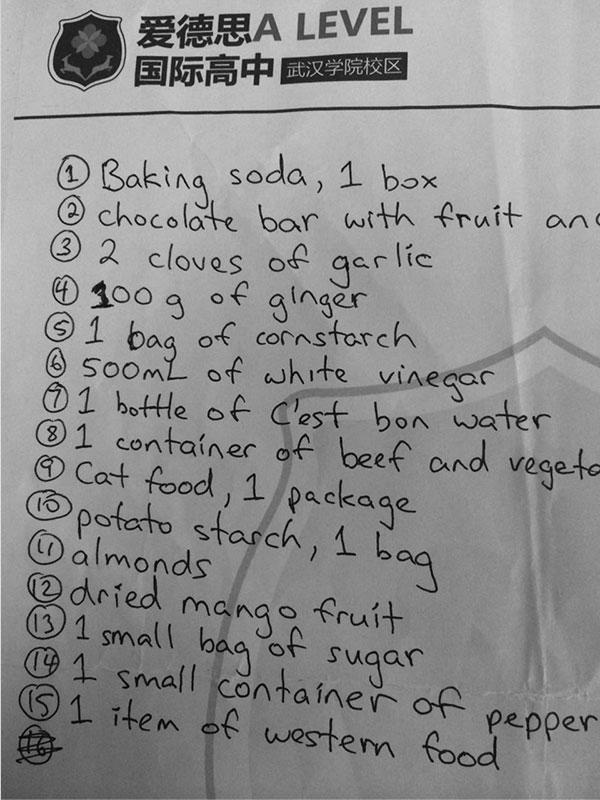 爱德思A LEVEL
国际高中 武汉学院校区
① Baking soda, 1 box
② chocolate bar with fruit and
③ 2 cloves of garlic
④ 100 g of ginger
⑤ 1 bag of cornstarch
⑥ 500mL of white vinegar
⑦ 1 bottle of C'est bon water
⑧ 1 container of beef and
⑨ Cat food, 1 package
⑩ potato starch, 1 bag
⑪ almonds
⑫ dried mango fruit
⑬ 1 small bag of sugar
⑭ 1 small container of pepper
⑮ 1 item of western food